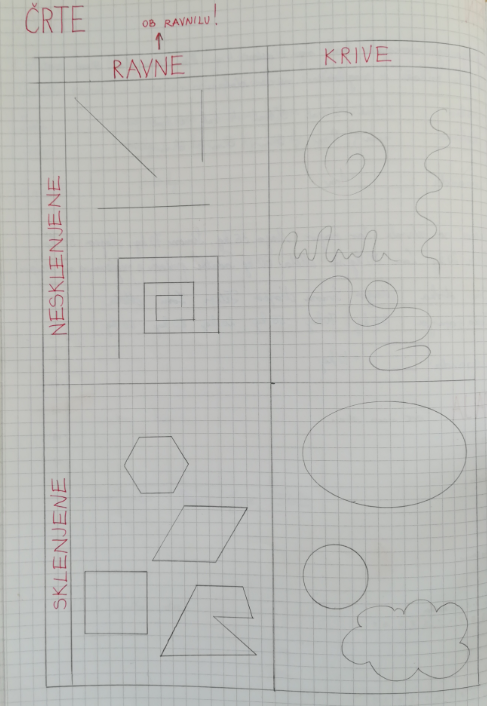 ČRTE
OB RAVNILU!
RAVNE
KRIVE
NESKLENJENE
SKLENJENE